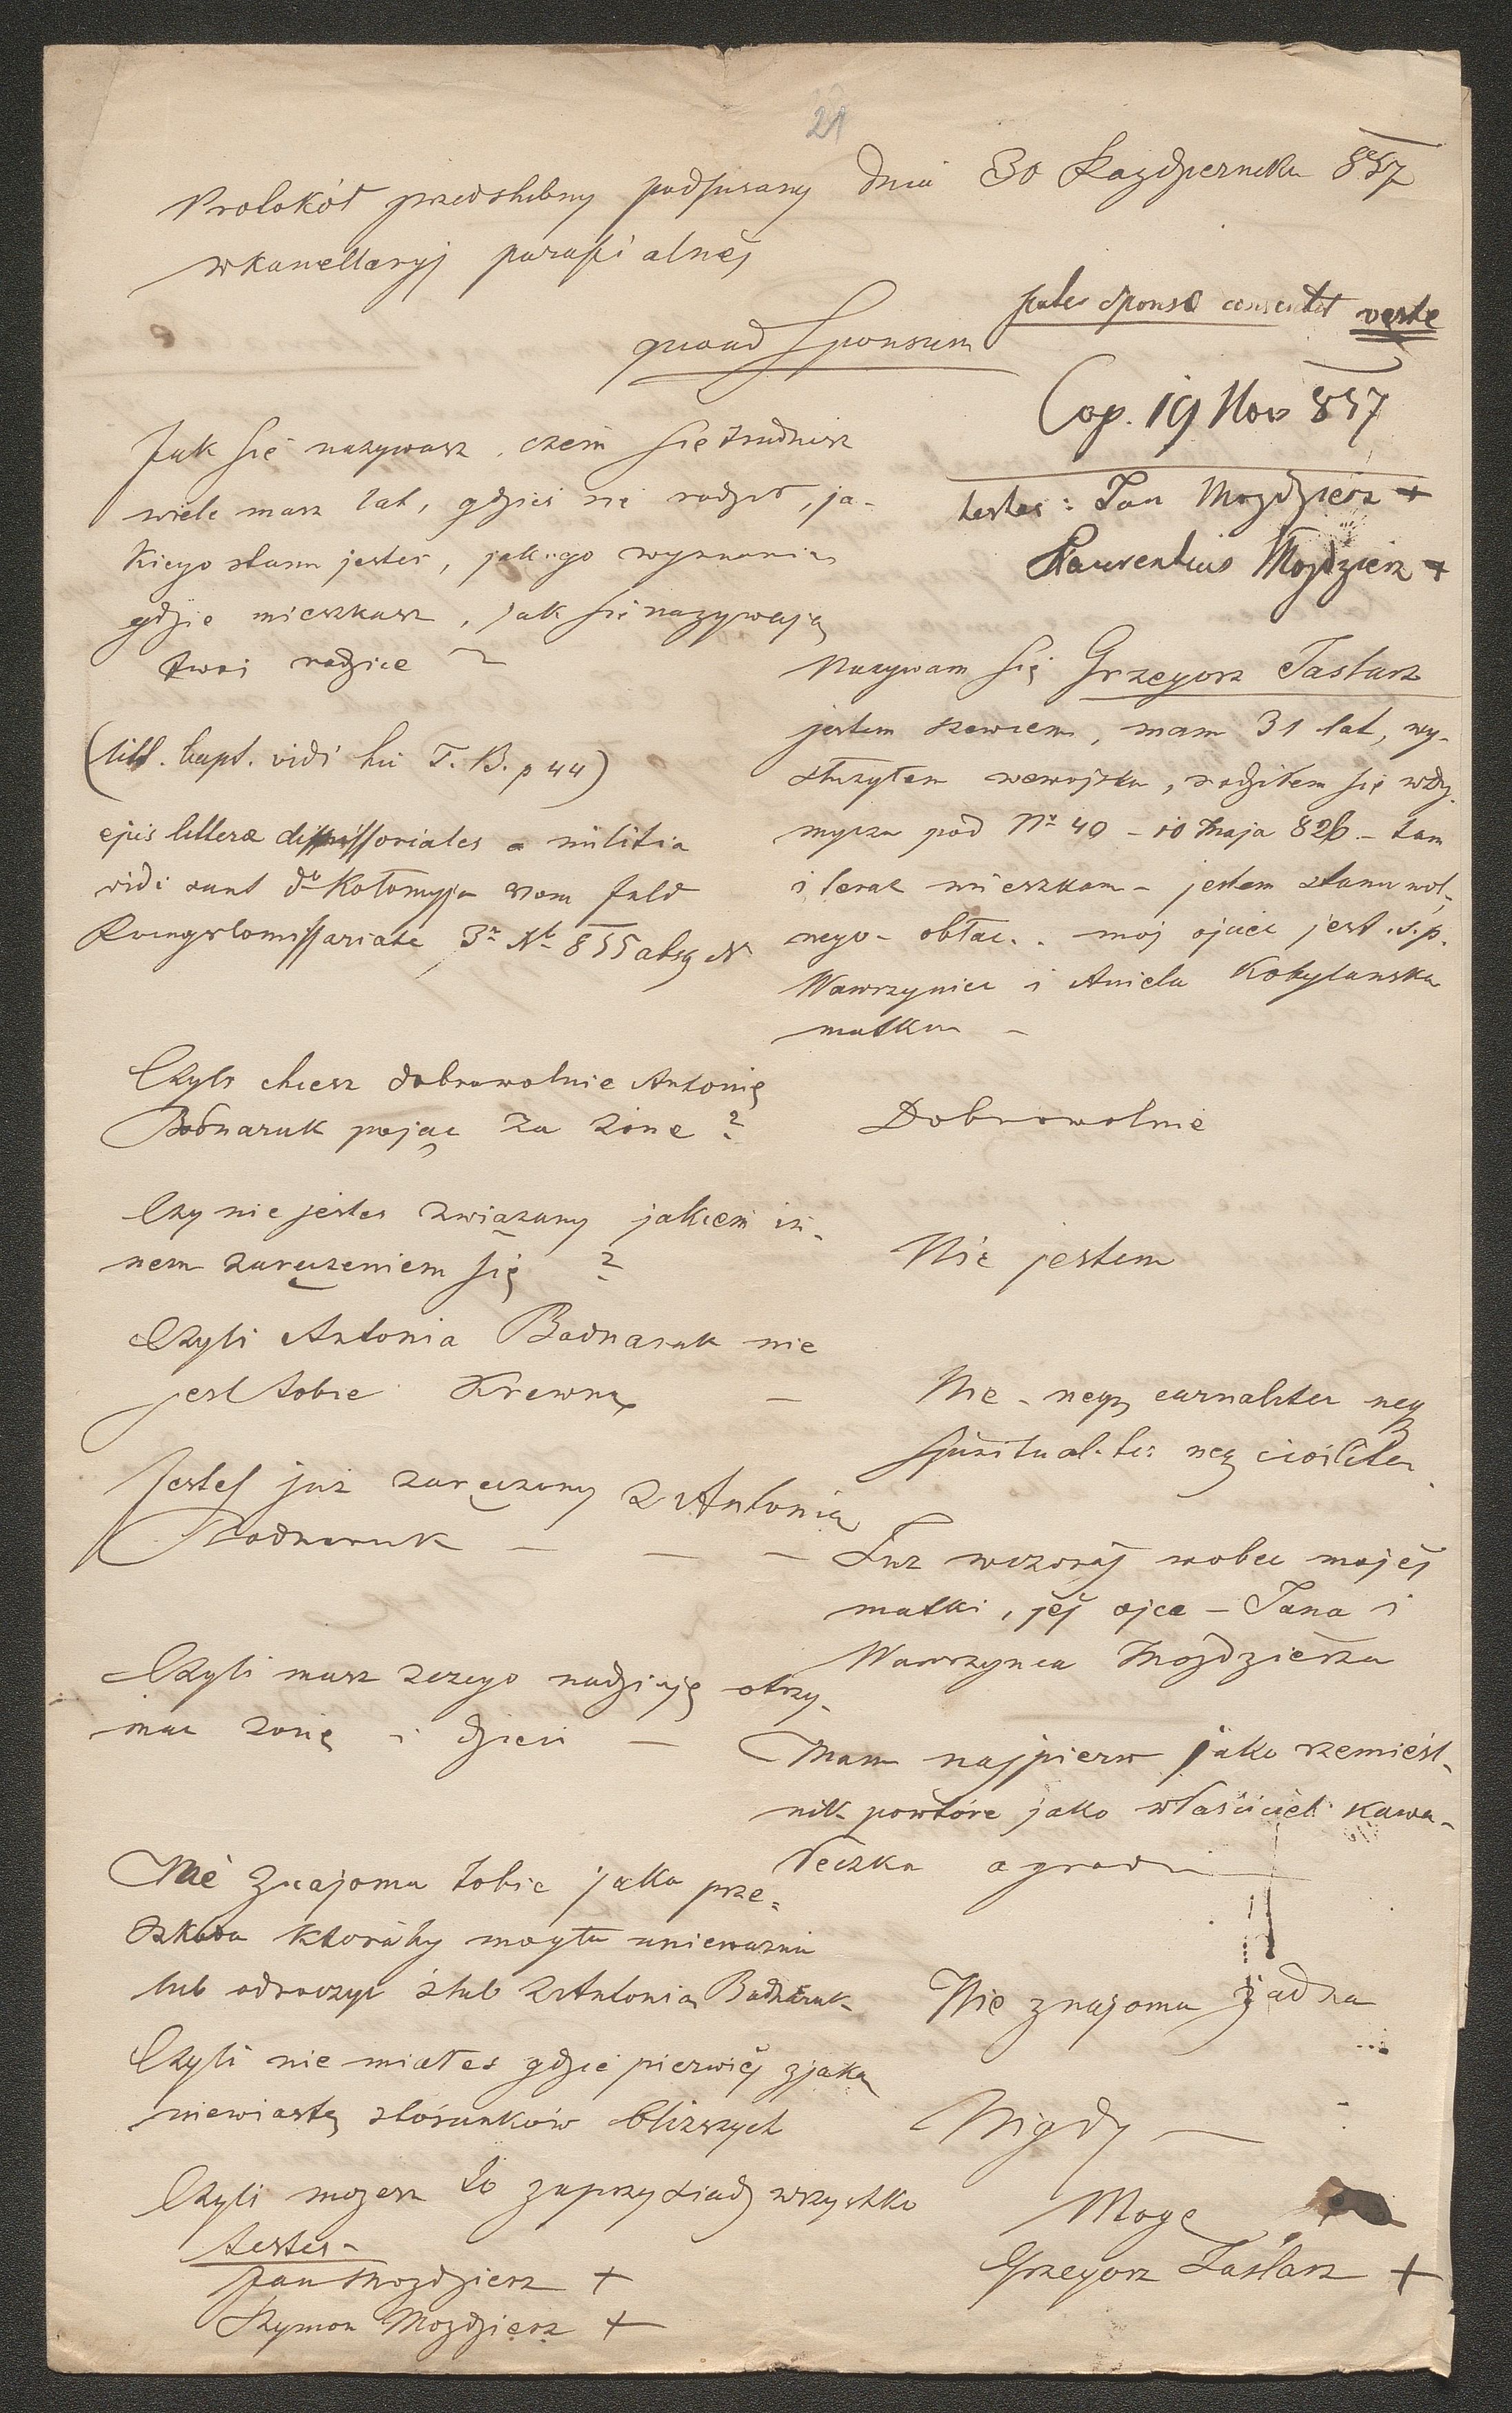 21
Protokół przedslubny podpisany dnia 30 Pazdziernika 857
w kancellaryj parafialnéj
quoad Sponsum
pater sponsæ consentit verte
Cop. 19 Nov 857
testes: Jan Mozdzierz +
Laurentius Mozdzierz +
Jak się nazywasz, czem się trudnisz
wiele masz lat, gdzieś się rodził, ja-
kiego stanu jesteś, jakiego wyznania
gdzie mieszkasz, jak się nazywają
twoi rodzice
(litt. bapt. vidi hic T. B. p 44)
ejus litteræ dimissoriales a militia
vidi sunt Kołomyja vom
855
Nazywam się Grzegorz Taslarz
jestem szewcem, mam 31 lat, wy-
służyłem wewojsku, rodziłem się
pod Nr 40 - 10 Maja 826 - tam
i teraz mieszkam - jestem stanu wol-
nego - obłac. . moj ojciec jest ś. p.
Wawrzyniec i Aniela Kobylanska
matka -
Czyli chcesz dobrowolnie Antonię
Bodnaruk pojąc za zone?
Dobrowolnie
Czy nie jestes związany jakiem in-
nem zaręczeniem się ?
Nie jestem
Czyli Antonia Bodnaruk nie
jest tobie Krewną -
Nie - neq carnaliter neq
spiritualiter neq civiliter
Jestes już zaręczony z Antonią
Bodnaruk - - -
Juz wczoraj wobec mojéj
matki, jéj ojca - Jana i
Wawrzynca Mozdzierza
Czyli masz zczego nadzieję otrzy-
mac zonę i dzieci -
Mam najpierw jako rzemieśl-
nik powtóre jako właściciel kawa-
łeczka ogrodu
Nie znajoma tobie jaka prze-
szkoda ktoraby mogła uniewaznic
lub odroczyc ślub z Antonią Bodnaruk
Nie znajoma żadna
Czyli nie miałes gdzie pierwiéj zjaką
niewiastą stósunków blizszych
Nigdy
Czyli mozesz to zaprzysiadz wszystko
Mogę
testes -
Jan Mozdzierz +
Szymon Mozdzierz +
Grzegorz Taslarz +